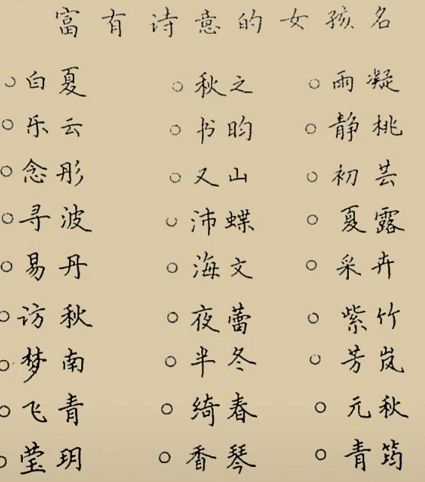 富有诗意的女孩名
○白夏 ○秋之 ○雨凝
○乐云 ○书昀 ○静桃
○念彤 ○又山 ○初芸
○寻波 ○沛蝶 ○夏露
○易丹 ○海文 ○采卉
○访秋 ○夜蕾 ○紫竹
○梦南 ○半冬 ○芳岚
○飞青 ○绮春 ○元秋
○莹玥 ○香琴 ○青筠